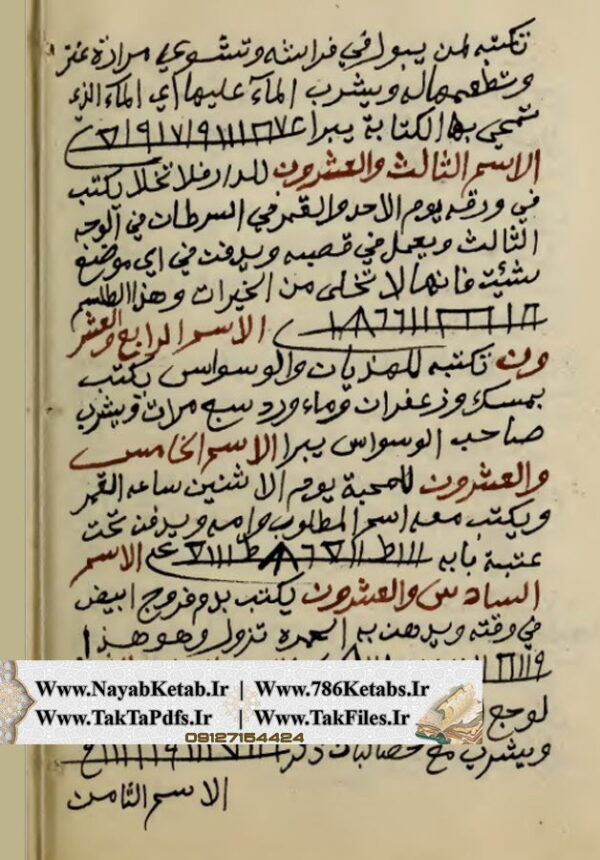 تكتبه لمن يبول في فراشه وتشوي مرارة عنز
وتطعمها له ويشرب المآء عليها اي المآء الذي
تمحي بها الكتابة يبرا
الاسم الثالث والعشرون للدار فلا تخلا يكتب
في ورقه يوم الاحد والقمر في السرطان في الوجه
الثالث ويعمل في قصبه ويدفن في اي موضع
شئت فانها لا تخلى من الخيرات وهذا الطلسم
الاسم الرابع والعشر
ون تكتبه للهذيان والوسواس يكتب
بمسك وزعفران وماء ورد سبع مرات ويشرب
صاحب الوسواس يبرا الاسم الخامس
والعشرون للمحبة يوم الاثنين ساعه القمر
ويكتب معه اسم المطلوب وامه ويدفن تحت
عتبة بابه الاسم
السادس والعشرون يكتب بدم فروج ابيض
في وقته ويدهن به الحمره تزول وهو هذا
Www.NayabKetab.Ir | Www.786Ketabs.Ir
Www.TakTaPdfs.Ir | Www.TakFiles.Ir
09127154424
لوجع
ويشرب مع
الاسم الثامن